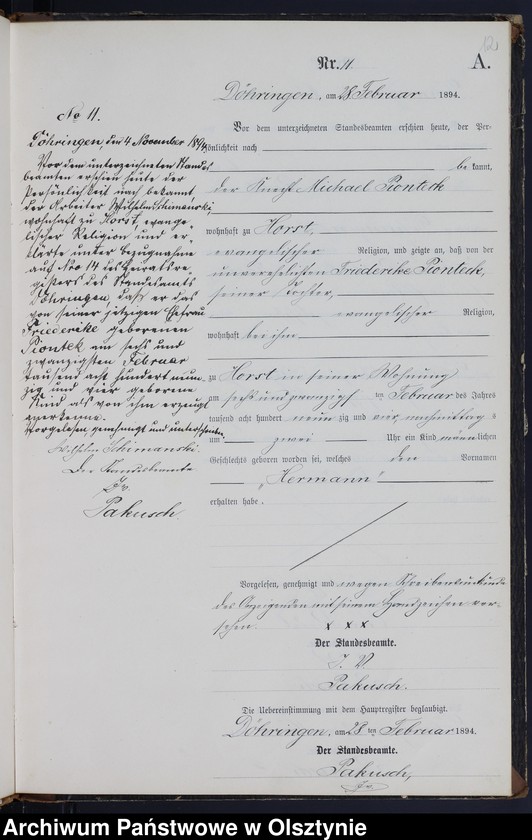 Nr. 11.
A.
Döhringen, am 28 Februar 1894.
Vor dem unterzeichneten Standesbeamten erschien heute, der Per-
sönlichkeit nach
be kannt,
der Knecht Michael Piontek
wohnhaft zu Horst,
evangelischer Religion, und zeigte an, daß von der
unverehelichten Friederike Piontek,
seiner Tochter,
evangelischer Religion,
wohnhaft bei ihm
zu Horst in seiner Wohnung
am sechs und zwanzigsten Februar des Jahres
tausend acht hundert neun zig und vier nachmittag s
um zwei Uhr ein Kind männlichen
Geschlechts geboren worden sei, welches den Vornamen
„Hermann“
erhalten habe.
Vorgelesen, genehmigt und wegen Schreibensunkunde
des Anzeigenden mit seinem Handzeichen ver-
sehen.
x x x
Der Standesbeamte.
J. V.
Pakusch.
Die Uebereinstimmung mit dem Hauptregister beglaubigt.
Döhringen, am 28 ten Februar 1894.
Der Standesbeamte.
Pakusch,
No 11.
Döhringen, den 4 November 1894
Vor dem unterzeichneten Standes
beamten erschien heute der
Persönlichkeit nach bekannt
der Arbeiter Wilhelm Schimanski,
wohnhaft zu Horst, evange-
lischer Religion und er-
klärte unter bezugnahme
auf Nro 14 des Heiratsre-
gisters des Standesamts
Döhringen, daß er das
von seiner jetzigen Ehefrau
Friederike geborenen
Piontek am sechs und
zwanzigsten Februar
tausend acht hundert neun-
zig und vier geborene
Kind als von ihm erzeugt
anerkenne.
Vorgelesen genehmigt und unterschrieben
Wilhelm Schimanski.
Der Standesbeamte
Pakusch
Archiwum Państwowe w Olsztynie